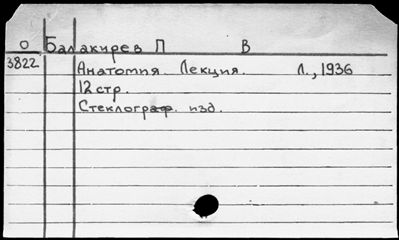 О Балакирев П В
3822 Анатомия. Лекция. Л., 1936
12 стр.
Стеклограф. изд.